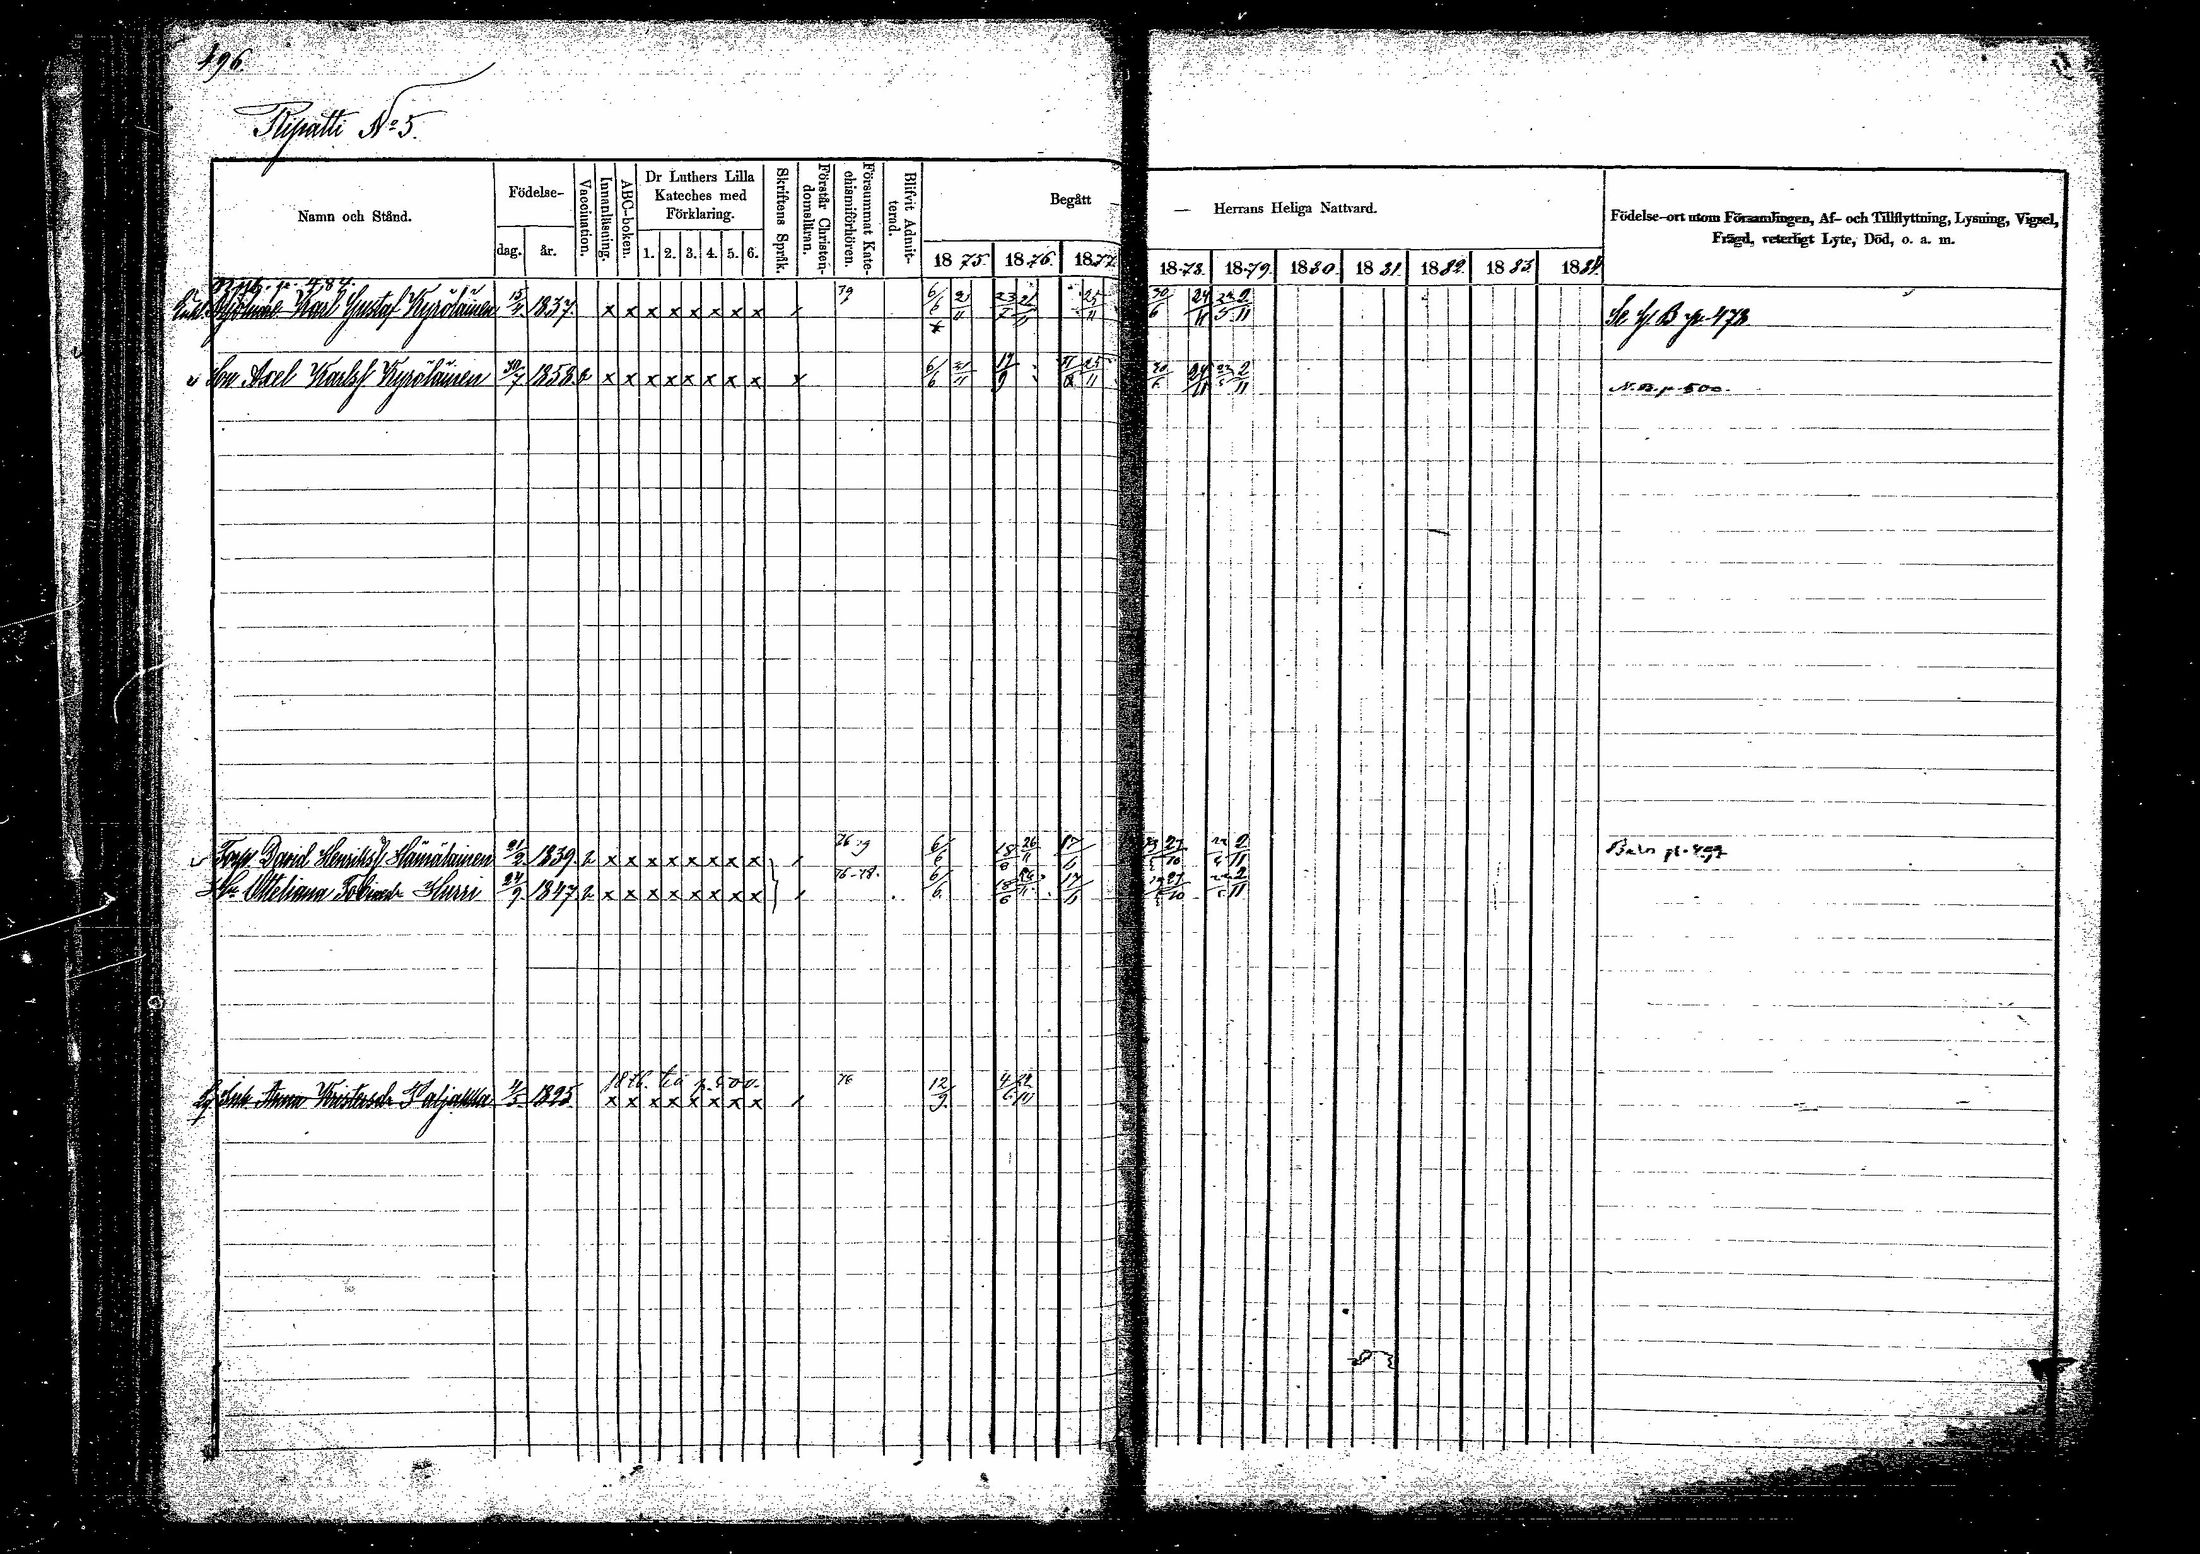 496.
Ripatti No 5.
Namn och Stånd.
Födelse-
dag.
år.
Vaccination.
Innanläsning.
ABC-boken.
Dr Luthers Lilla Kateches med Förklaring.
1. 2. 3. 4. 5. 6.
Skriftens Språk.
Förstår Christendomsläran.
Försummat Katechismiförhören.
Blifvit Admitterad.
Begått — Herrans Heliga Nattvard.
1875. 1876. 1877. 1878. 1879. 1880. 1881. 1882. 1883. 1884.
Födelse-ort utom Församlingen, Af- och Tillflyttning, Lysning, Vigsel, Frägd, veterligt Lyte, Död, o. a. m.
p. 484.
Karl Gustaf Kyröläinen 15/4 1837. x x x x x x x x 79 6/6 21/11 25/11 30/6 24/11 2/11 Se H B p 478
Son Axel Karlsf Kyröläinen 30/7 1858. v x x x x x x x x x 6/6 21/11 25/11 30/6 24/11 2/11 N. B. p. 500.
Torp. David Henriksf Hämäläinen 21/2 1839. v x x x x x x x x 6/6 18/6 26/11 17/6 27/10 2/11
Hu Otteliana Hurri 24/9 1847 v x x x x x x x x 76-78. 6/6 18/6 26/11 17/6 27/10 2/11
1876. p. 500.
Enk. Anna Paljakka 4/5 1825 x x x x x x x x 76 12/9